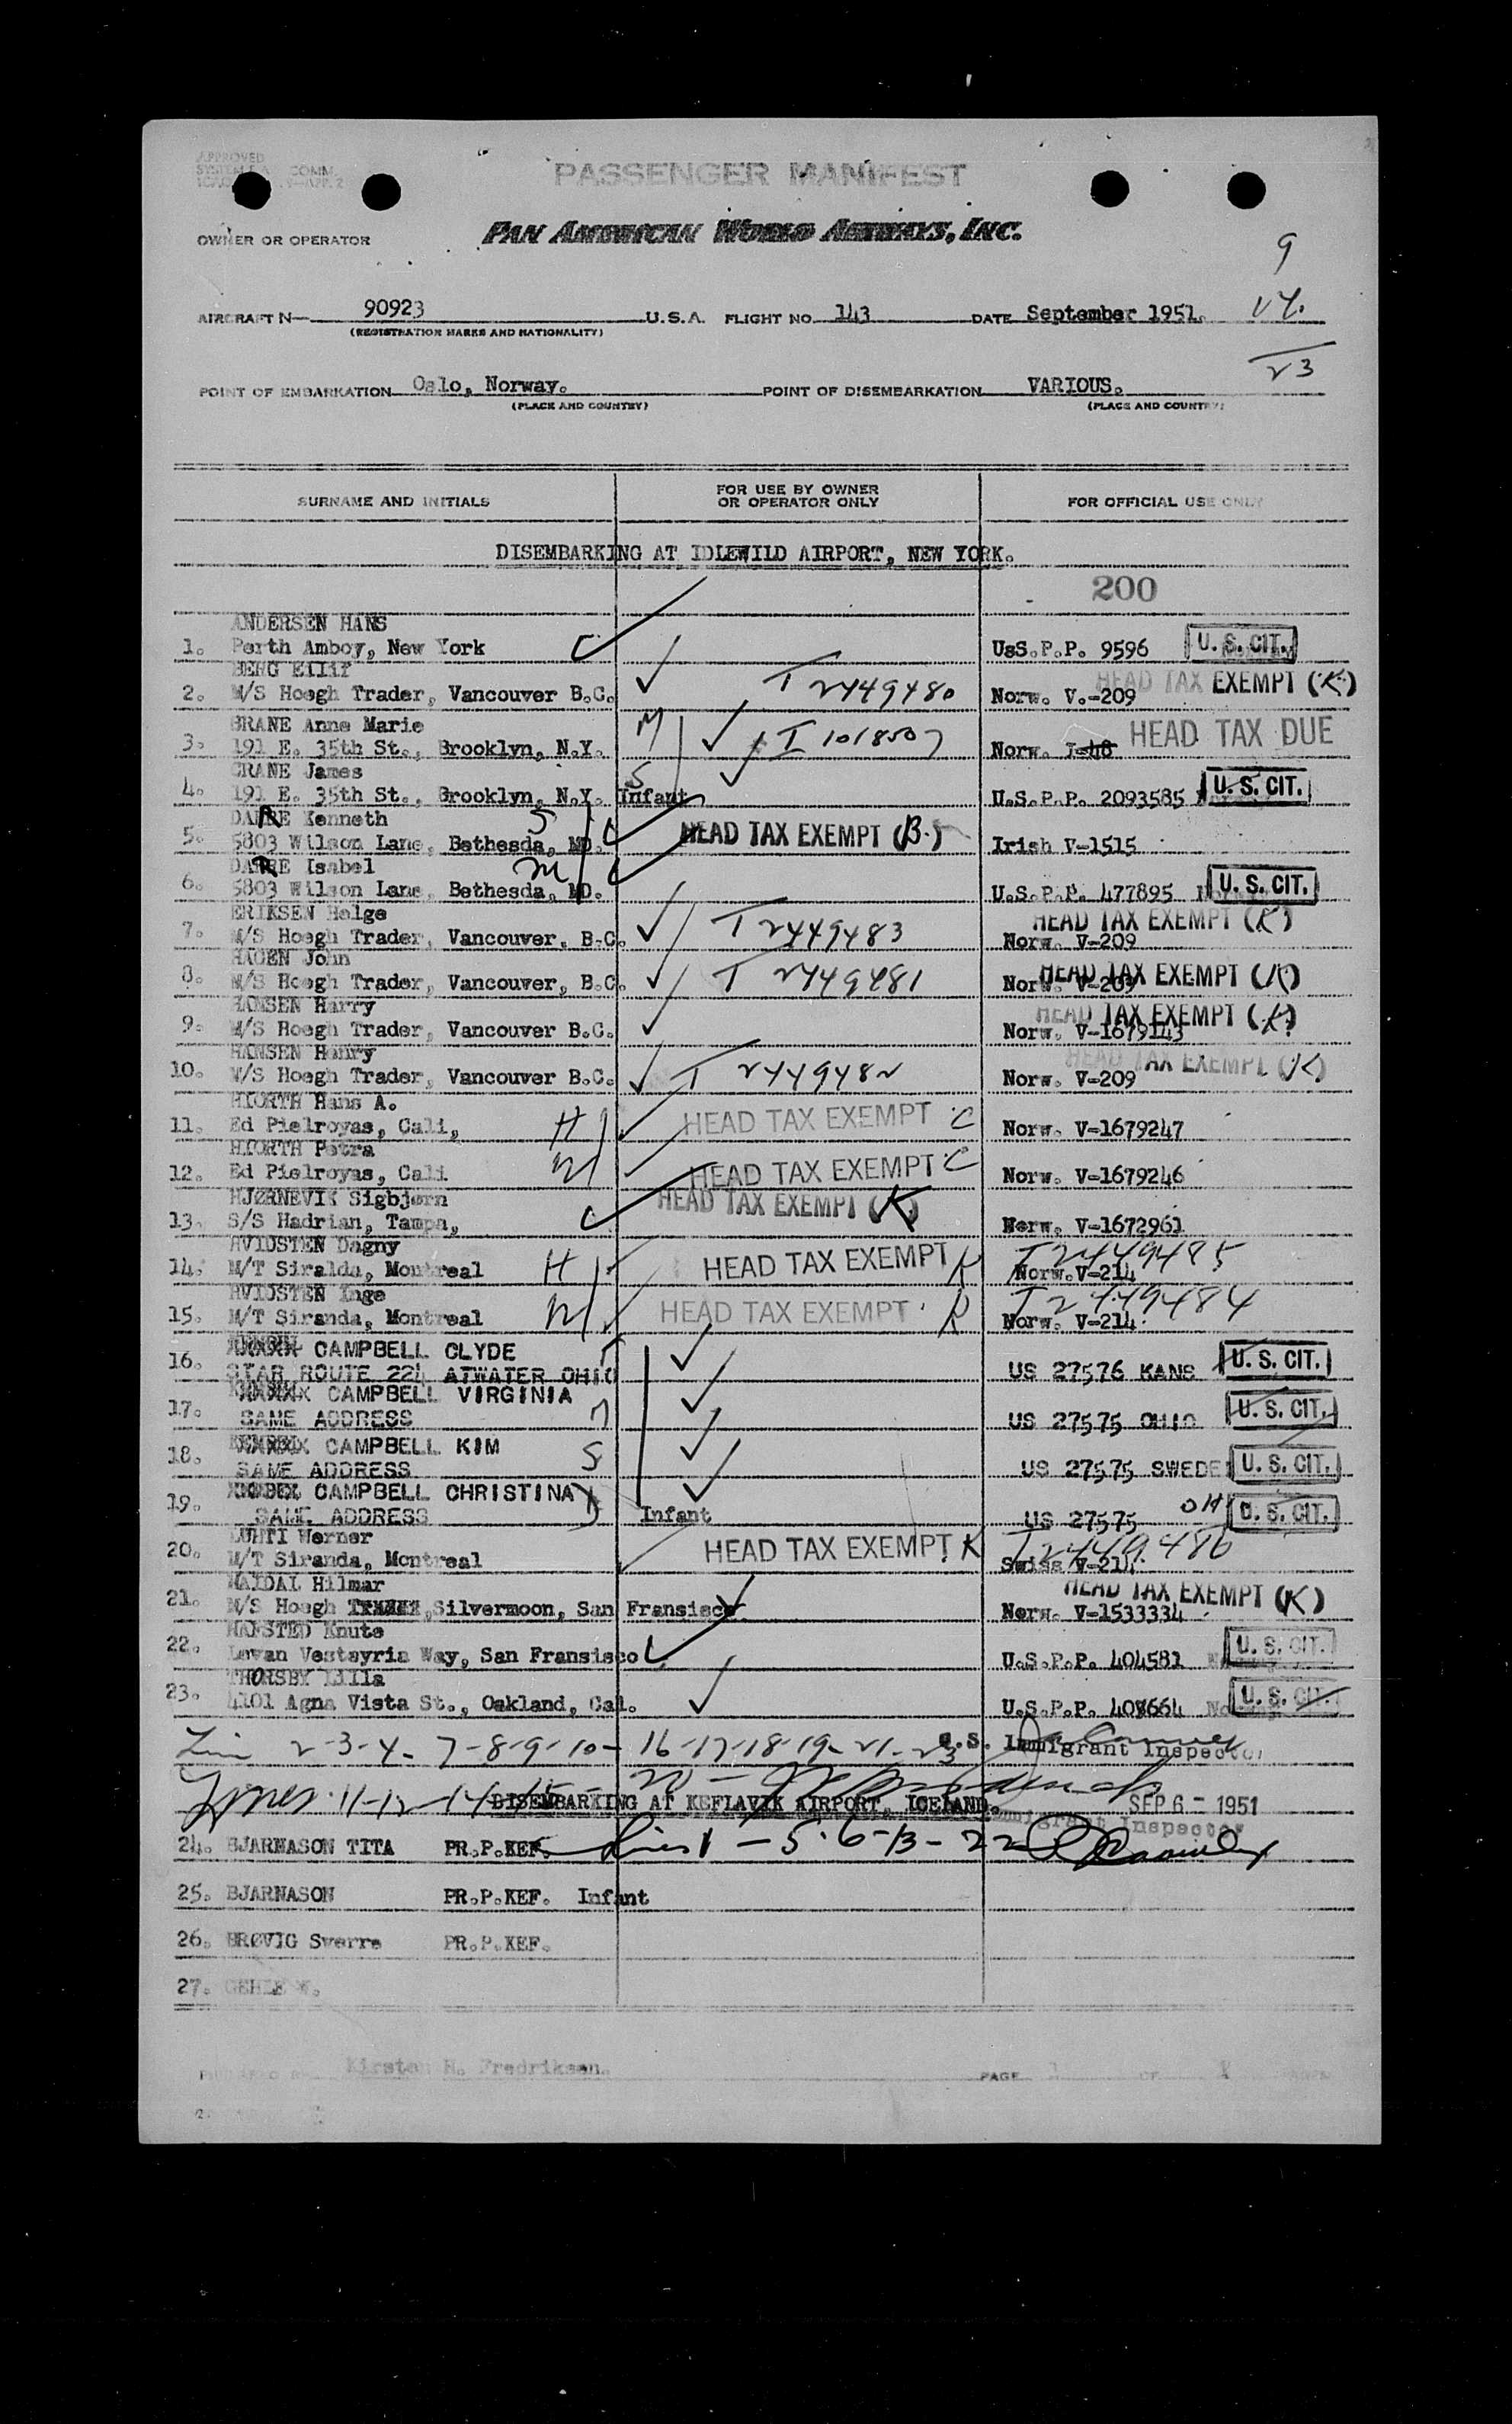 APPROVED
COMM.
PASSENGER MANIFEST
OWNER OR OPERATOR
PAN AMERICAN WORLD AIRWAYS, INC.
9
AIRCRAFT N— 90923 U.S.A. FLIGHT NO. 143 DATE September 1951. 14.
(REGISTRATION MARKS AND NATIONALITY)
23
POINT OF EMBARKATION Oslo, Norway. POINT OF DISEMBARKATION VARIOUS.
(PLACE AND COUNTRY) (PLACE AND COUNTRY)
SURNAME AND INITIALS FOR USE BY OWNER OR OPERATOR ONLY FOR OFFICIAL USE ONLY
DISEMBARKING AT IDLEWILD AIRPORT, NEW YORK.
200
ANDERSEN HANS
1. Perth Amboy, New York UsS.P.P. 9596 U. S. CIT.
BERG Eilif
2. M/S Hoegh Trader, Vancouver B.C. T 2449480 Norw. V.-209 HEAD TAX EXEMPT (K)
CRANE Anne Marie
3. 191 E. 35th St., Brooklyn, N.Y. M I 1018507 Norw. I-48 HEAD TAX DUE
CRANE James
4. 191 E. 35th St., Brooklyn, N.Y. Infant S U.S.P.P. 2093585 U. S. CIT.
DARRE Kenneth
5. 5803 Wilson Lane, Bethesda, MD. S HEAD TAX EXEMPT (B.) Irish V-1515
DARRE Isabel
6. 5803 Wilson Lane, Bethesda, MD. M U.S.P.P. 477895 U. S. CIT.
ERIKSEN Helge
7. M/S Hoegh Trader, Vancouver, B.C. T 2449483 Norw. V-209 HEAD TAX EXEMPT (K)
HAGEN John
8. M/S Hoegh Trader, Vancouver, B.C. T 2449481 Norw. V-209 HEAD TAX EXEMPT (K)
HANSEN Harry
9. M/S Hoegh Trader, Vancouver B.C. Norw. V-1679143 HEAD TAX EXEMPT (K)
HANSEN Henry
10. M/S Hoegh Trader, Vancouver B.C. T 2449482 Norw. V-209 HEAD TAX EXEMPT (K)
HIORTH Hans A.
11. Ed Pielroyas, Cali, H HEAD TAX EXEMPT C Norw. V-1679247
HIORTH Petra
12. Ed Pielroyas, Cali W HEAD TAX EXEMPT C Norw. V-1679246
HJØRNEVIK Sigbjørn
13. S/S Hadrian, Tampa, HEAD TAX EXEMPT (K) Norw. V-1672961
HVIDSTEN Dagny
14. M/T Siralda, Montreal H HEAD TAX EXEMPT K T 2449485 Norw.V-214
HVIDSTEN Inge
15. M/T Siranda, Montreal W HEAD TAX EXEMPT K T 2449484 Norw. V-214
16. CAMPBELL CLYDE
STAR ROUTE 224 ATWATER OHIO US 27576 KANS U. S. CIT.
17. CAMPBELL VIRGINIA
SAME ADDRESS US 27575 OHIO U. S. CIT.
18. CAMPBELL KIM S
SAME ADDRESS US 27575 SWEDE U. S. CIT.
19. CAMPBELL CHRISTINA
SAME ADDRESS Infant US 27575 OH U. S. CIT.
LUHTI Werner
20. M/T Siranda, Montreal HEAD TAX EXEMPT K T 2449486 Swiss V-214
MAIDAL Hilmar
21. M/S Hoegh Silvermoon, San Fransisco Norw. V-1533334 HEAD TAX EXEMPT (K)
Knute
22. Levan Vesteyria Way, San Fransisco U.S.P.P. 404581 U. S. CIT.
THORSBY Lilla
23. 4101 Agna Vista St., Oakland, Cal. U.S.P.P. 408664 U. S. CIT.
2-3-4-7-8-9-10-16-17-18-19-21-23 U.S. Immigrant Inspector
Lines 11-12-14-15-20
DISEMBARKING AT KEFLAVIK AIRPORT, ICELAND. SEP 6 - 1951
Immigrant Inspector
24. BJARNASON TITA PR.P.KEF. Lines 1-5-6-13-22
25. BJARNASON PR.P.KEF. Infant
26. BRØVIG Sverre PR.P.KEF.
27. GEHLE W.
Kirsten H. Fredriksen. PAGE 1 OF 1